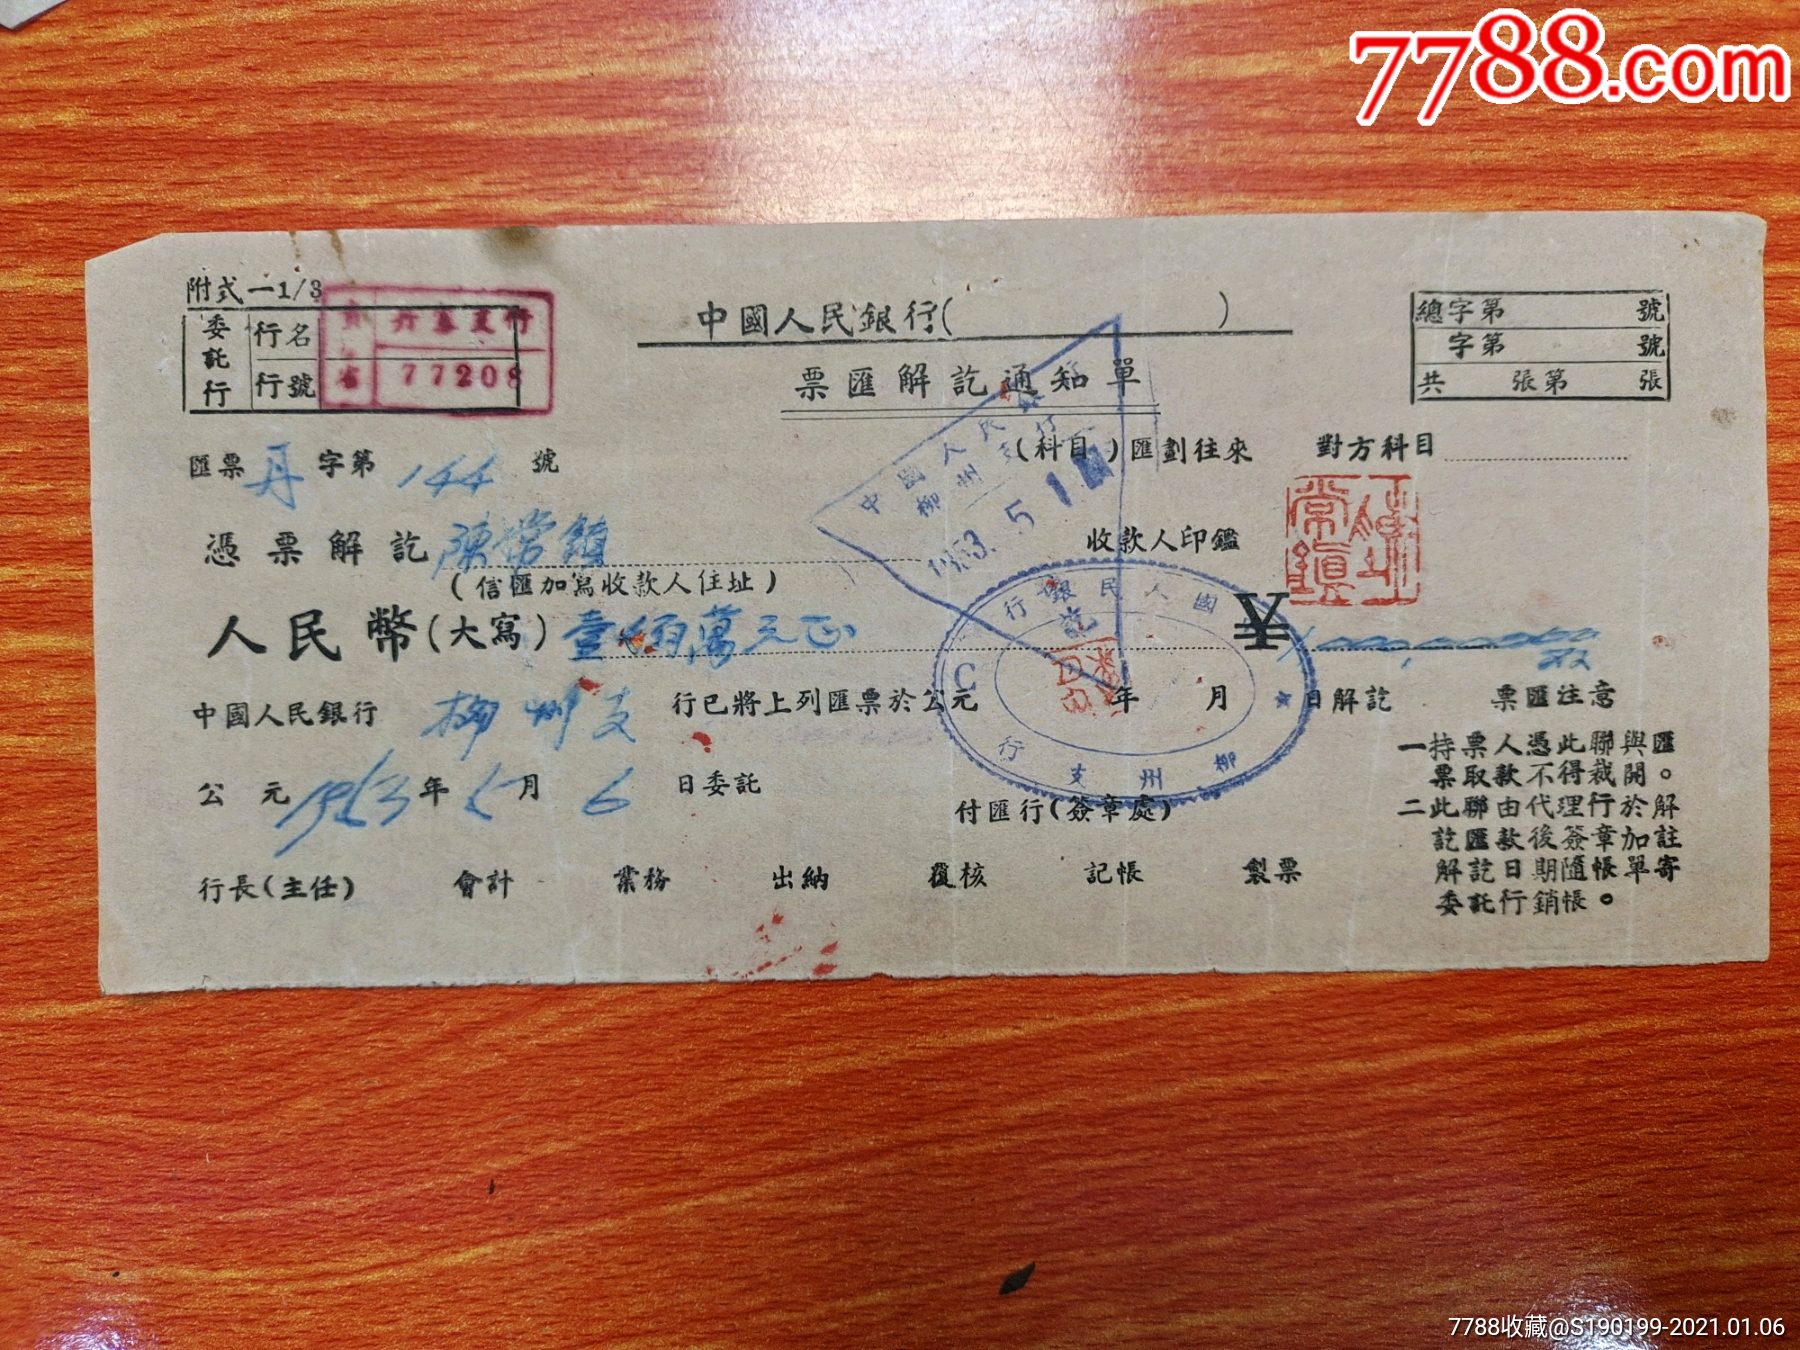 7788.com
附式一1/3
委託行
行名
行號
77208
中國人民銀行( )
票匯解訖通知單
總字第 號
字第 號
共 張第 張
匯票 丹 字第 144 號
(科目)匯劃往來 對方科目
中國人民銀行
柳州支行
1953.5.1
憑票解訖 陳常鎮
收款人印鑑
(信匯加寫收款人住址)
人民幣(大寫) 壹佰萬元正
¥
國人民銀行
訖
柳州支行
C
中國人民銀行 柳州支 行已將上列匯票於公元 年 月 日解訖
公元 1953 年 5 月 6 日委託
付匯行(簽章處)
行長(主任) 會計 業務 出納 覆核 記帳 製票
票匯注意
一持票人憑此聯與匯
票取款不得裁開。
二此聯由代理行於解
訖匯款後簽章加註
解訖日期隨帳單寄
委託行銷帳。
7788收藏@S190199-2021.01.06